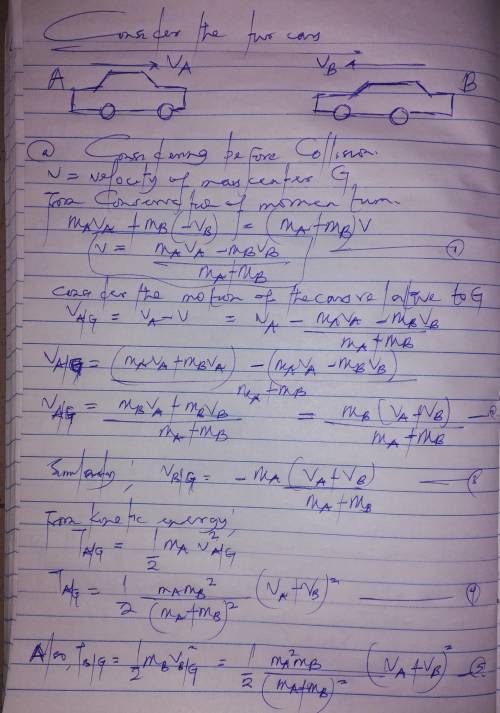 Consider the two cars
A → V_A V_B ← B
(a) Considering before Collision.
V = velocity of mass center G
From Conservation of momentum.
m_A V_A + m_B (-V_B) = (m_A + m_B) V
V = (m_A V_A - m_B V_B) / (m_A + m_B) — (1)
consider the motion of the cars relative to G
V_A/G = V_A - V = V_A - (m_A V_A - m_B V_B) / (m_A + m_B)
V_A/G = ((m_A V_A + m_B V_A) - (m_A V_A - m_B V_B)) / (m_A + m_B)
V_A/G = (m_B V_A + m_B V_B) / (m_A + m_B) = m_B (V_A + V_B) / (m_A + m_B) — (2)
Similarly; V_B/G = - m_A (V_A + V_B) / (m_A + m_B) — (3)
From kinetic energy;
T_A/G = 1/2 m_A V²_A/G
T_A/G = 1/2 m_A m_B² / (m_A + m_B)² (V_A + V_B)² — (4)
Also, T_B/G = 1/2 m_B V²_B/G = 1/2 m_A² m_B / (m_A + m_B)² (V_A + V_B)² — (5)